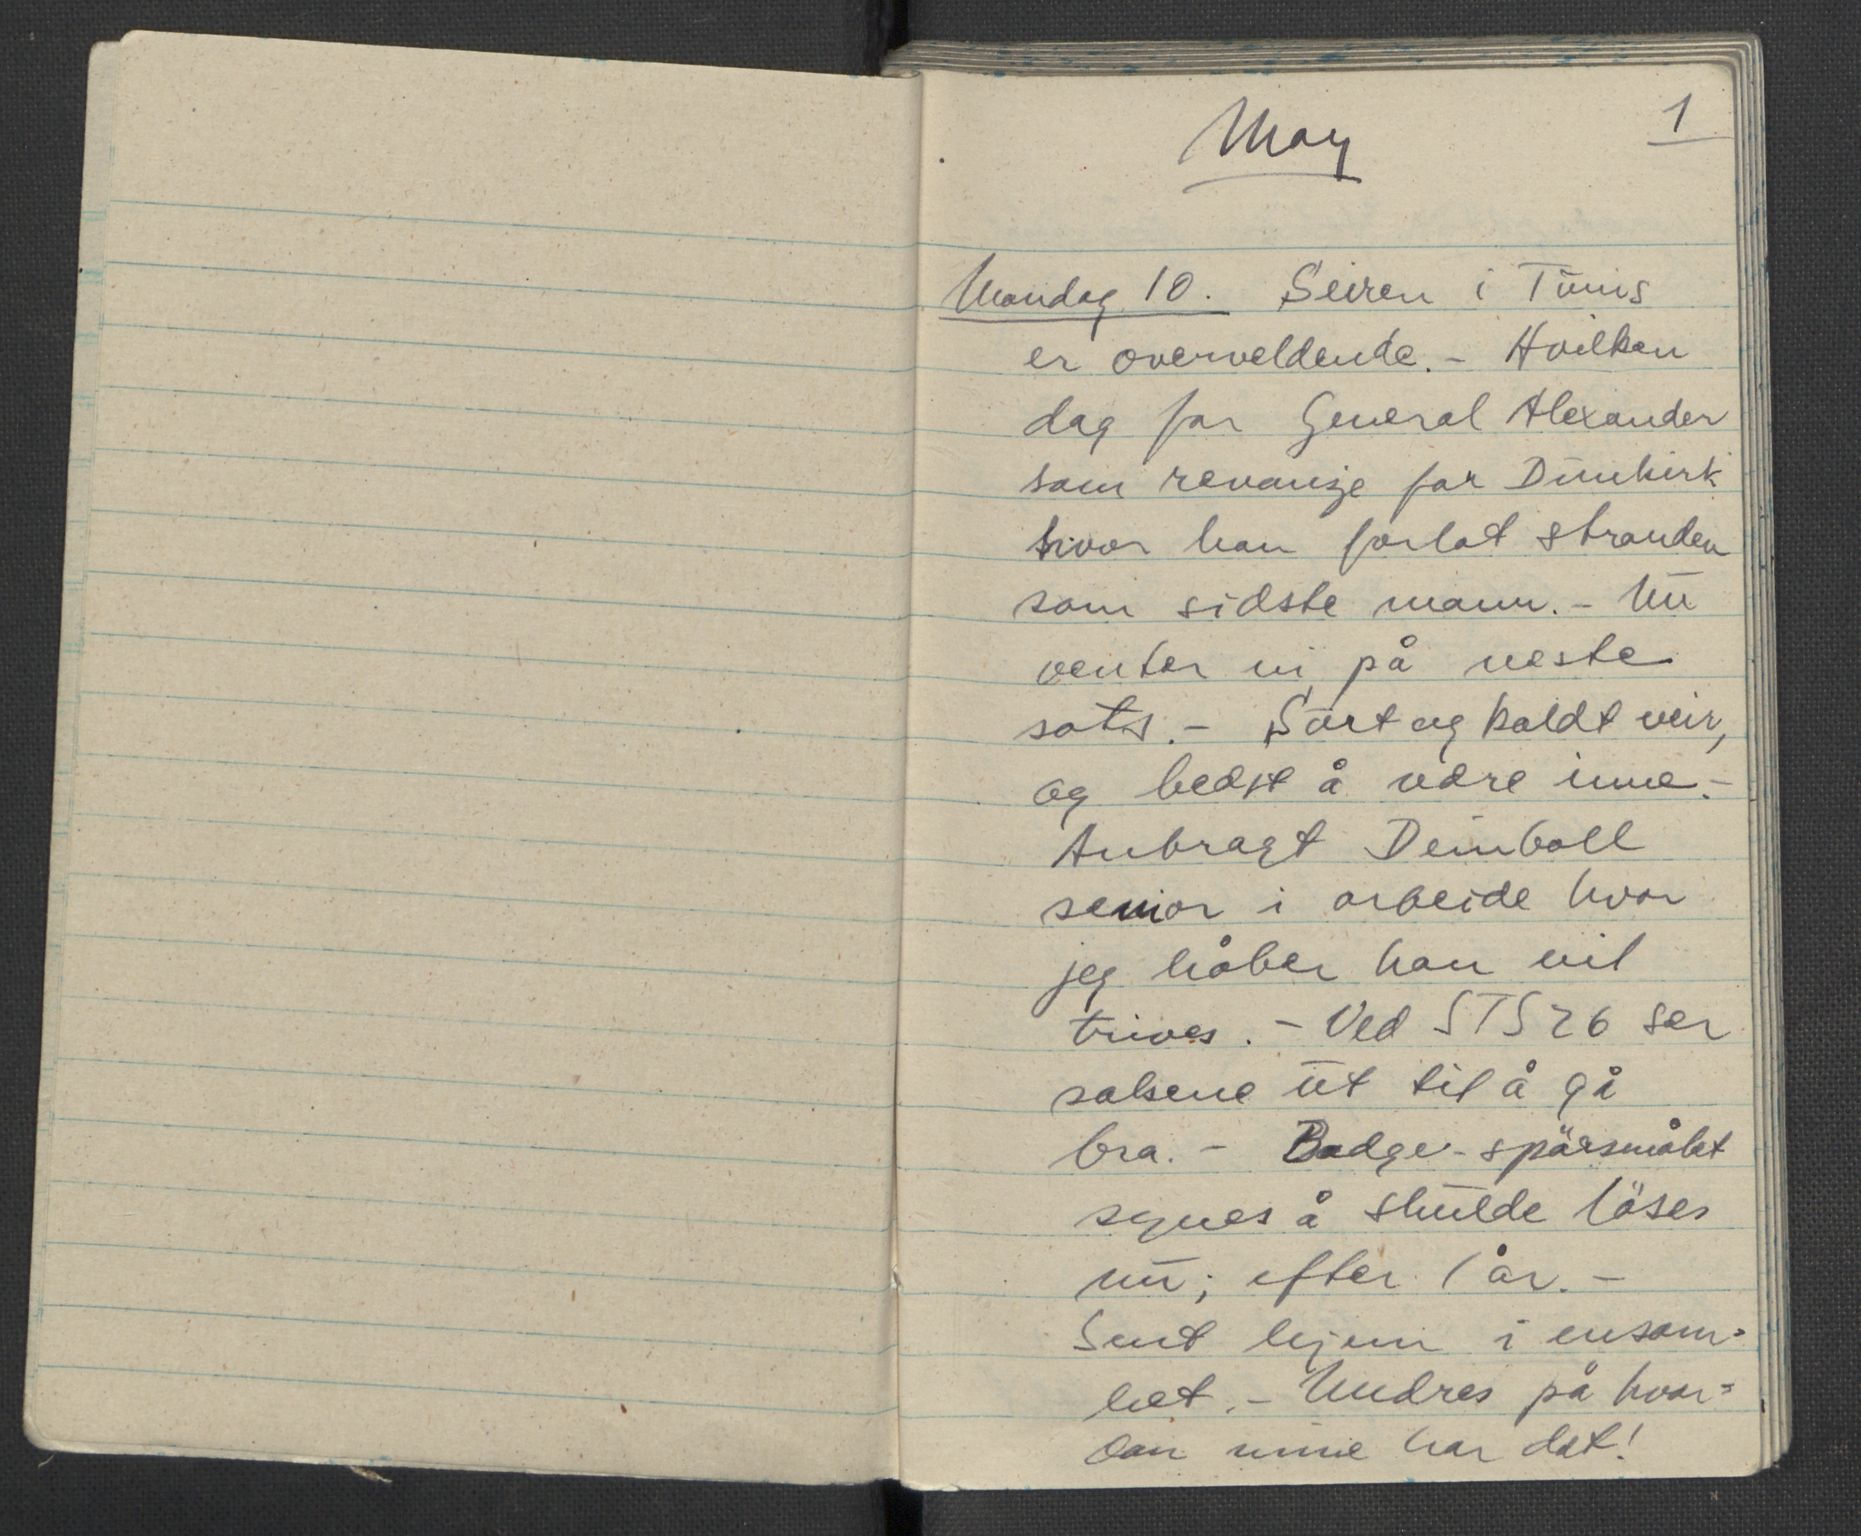 1
May
Mandag 10. Seiren i Tūnis
er overveldende. - Hvilken
dag for General Alexander
som revansje for Dūnkirk
hvor han forlot stranden
som sidste mann. - Nū
venter vi på neste
sats. - Sūrt og koldt veir,
og bedst å være inne. -
Anbragt Deinboll
senior i arbeide hvor
jeg håber han vil
trives. - Ved STS 26 ser
sakene ūt til å gå
bra. - Badge-spörsmålet
synes å skūlde löses
nū; efter 1 år. -
Sent hjem i ensom=
het. - Undres på hvor=
dan mine har det!